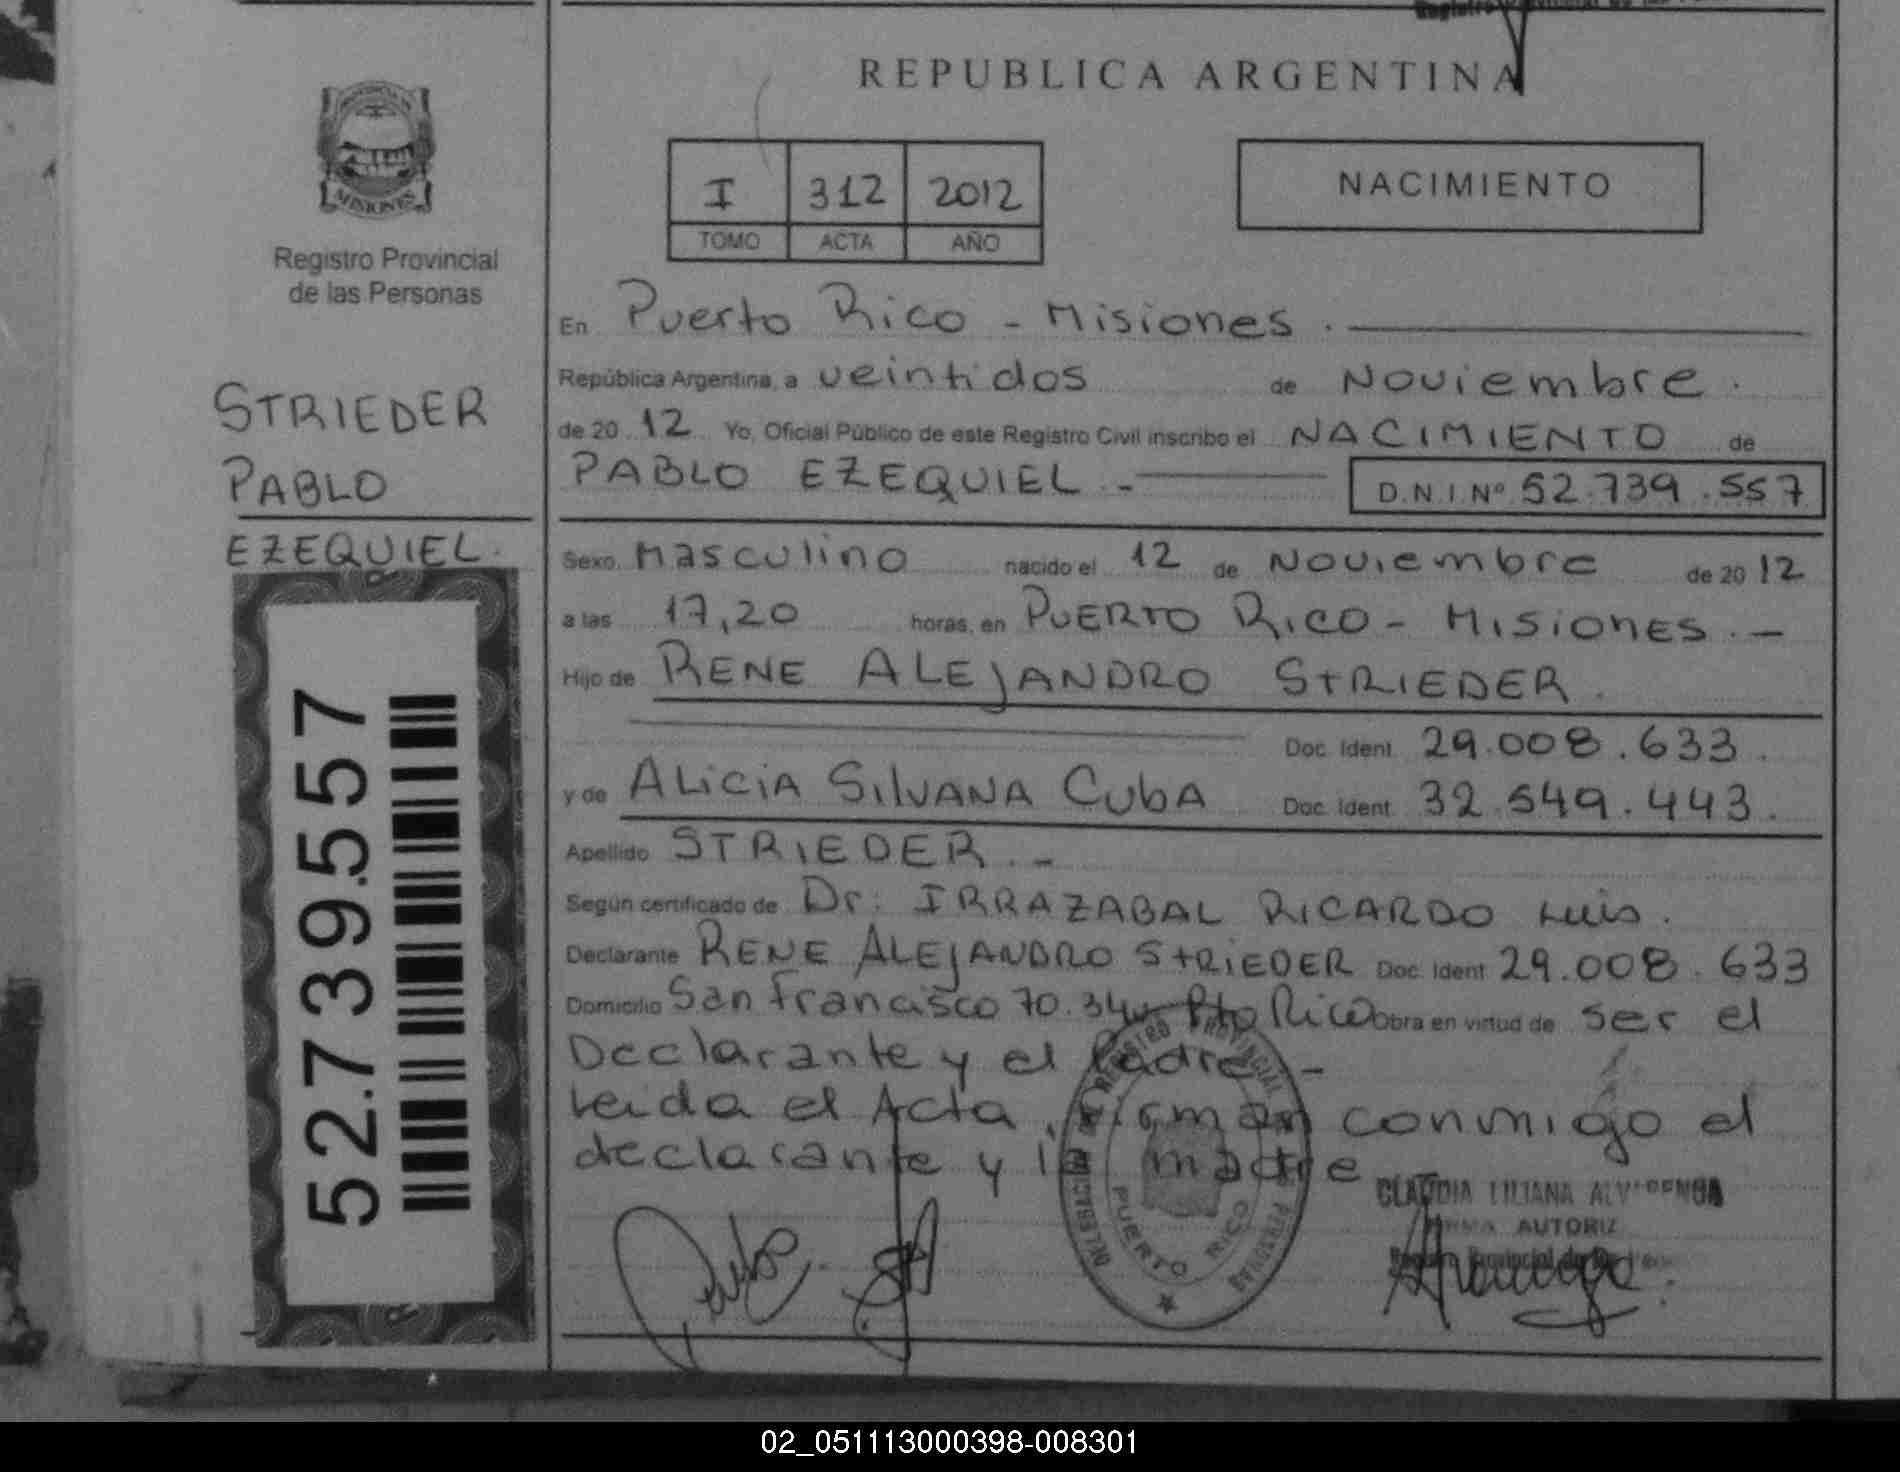 REPUBLICA ARGENTINA
MISIONES
Registro Provincial
de las Personas
I 312 2012
TOMO ACTA AÑO
NACIMIENTO
STRIEDER
PABLO
EZEQUIEL.
52.739.557
En Puerto Rico - Misiones .
República Argentina, a veintidos de Noviembre.
de 20 12 Yo, Oficial Público de este Registro Civil inscribo el NACIMIENTO de
PABLO EZEQUIEL.- D.N.I.Nº 52.739.557
Sexo Masculino nacido el 12 de Noviembre de 20 12
a las 17,20 horas, en PUERTO RICO - MISIONES.-
Hijo de RENE ALEJANDRO STRIEDER.
Doc. Ident. 29.008.633.
y de ALICIA SILVANA CUBA Doc. Ident. 32.549.443.
Apellido STRIEDER.-
Según certificado de Dr: IRRAZABAL RICARDO Luis.
Declarante RENE ALEJANDRO STRIEDER Doc. Ident. 29.008.633
Domicilio San Francisco 70. Pto Rico Obra en virtud de ser el
Declarante y el Padre -
Leida el Acta, firman conmigo el
declarante y la madre
REGISTRO PROVINCIAL
PERSONAS
PUERTO RICO
CLAUDIA LILIANA
FIRMA AUTORIZ
Registro Provincial de
02_051113000398-008301